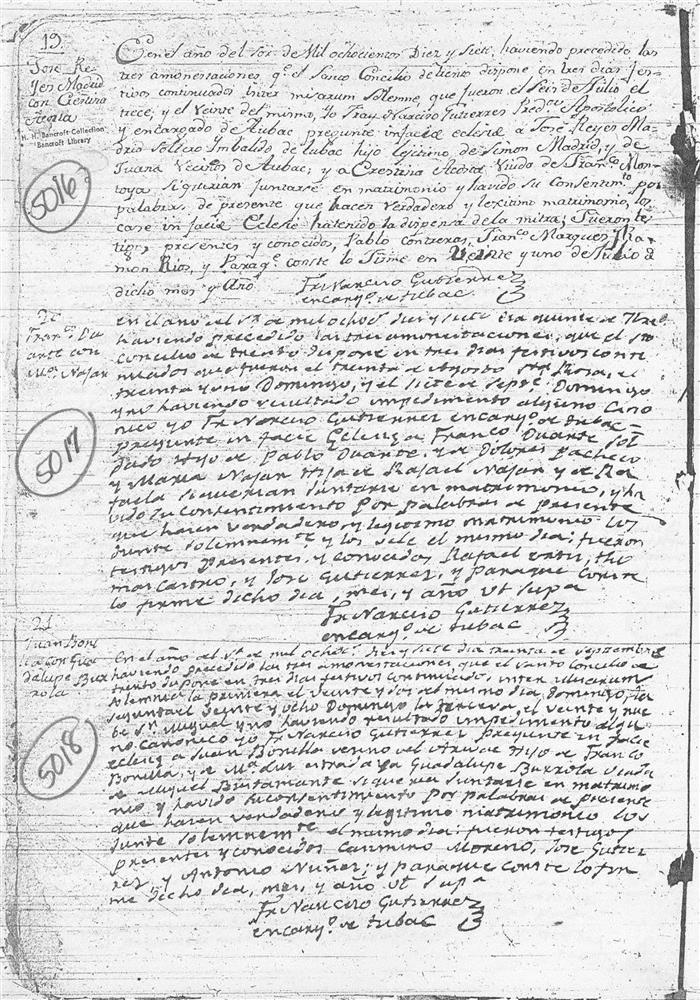 19.
Jose Re-
yes Madrid
con Crestina
Acosta
H. H. Bancroft Collection
Bancroft Library
5016
En el año del Sor. de Mil ochocientos Diez y siete, haviendo precedido las
tres amonestaciones, qe. el Santo Concilio de Trento dispone en tres dias fes-
tivos continuados inter misarum solemne, que fueron el Seis de Julio el
trece, y el Veinte del mismo, Yo Fray Narciso Gutierres Predicr. Apostolico
y encargado de Tubac pregunte in facie eclesie a Jose Reyes Ma-
drid Soltero Imbalido de tubac hijo lejitimo de Simon Madrid, y de
Juana Vecinos de Tubac; y a Crestina Acosta Viuda de Franco. Mon-
toya si querian juntarse en matrimonio y havido su consentimto. por
palabras de presente que hacen verdadero y lexitimo matrimonio, los
case in facie Eclesie hatenido la dispensa de la mitra; Fueron te-
tigos, presentes y conocidos, Pablo contreras, Franco. Marques y Ra-
mon Rios, y Paraqe. conste lo Firme en Veinte y uno de Julio de
dicho mes y Año
Fr. Narciso Gutierrez
encargo. de tubac
20
Franco. Du
arte con
Ma. Najar
5017
en el año del Sr. de mil ochos. diez y siete dia quince de 7bre.
haviendo precedido las tres amonestaciones, que el sto.
concilio de trento dispone en tres dias festivos conti
nuados que fueron el treinta de Agosto sta. Rosa, el
treinta y uno Domingo, y el siete de Septe. Domingo
y no haviendo resultado impedimento alguno Cano
nico yo Fr. Narciso Gutierrez encargo. de tubac =
pregunte in facie Eclesię a Franco Duarte Sol
dado Hijo de Pablo Duarte, y de Dolores Pacheco
y Maria Najar Hija de Rafael Najar y de Ra
faela si querian Juntarse en matrimonio, y ha
vido su consentimiento Por palabras de presente
que hacen verdadero y legitimo matrimonio los
Junte solemnemte. y los vele el mismo dia; fueron
testigos presentes, y conocidos Rafael ortis, tho
mas Castro, y Jose Gutierrez, y Paraque Conste
lo firme dicho dia, mes, y año Vt Supa
Fr. Narciso Gutierrez
encargo. de tubac
21
Juan Boni
lla con Gua
dalupe Bur
rola
5018
En el año del Sr. de mil ochocs. diez y siete dia treinta de septiembre
haviendo precedido las tres amonestaciones que el santo concilio de
trento dispone en tres dias festivos continuados, inter misarum
solemnia la primera el veinte y dos del mismo dia domingo, la
segunda el veinte y ocho Domingo la tercera, el veinte y nue
be Sn. Miguel y no haviendo resultado impedimento algu
no Canonico yo Fr. Narciso Gutierrez Pregunte in facie
eclesię a Juan Bonilla vecino del Arivac Hijo de Franco
Bonilla, y de Ma. Luz estrada ya Guadalupe Burrola Viuda
de Miguel Bustamante si querian Juntarse en matrimo
nio y havido su consentimiento Por palabras de presente
que hacen verdadero y legitimo matrimonio los
Junte solemnemte. el mismo dia: fueron testigos
presentes y conocidos Carmino Moreno, Jose Gutier
rez, y Antonio Nuñez; y paraque conste lo fir
me dicho dia, mes, y año Vt Supa
Fr. Narciso Gutierrez
encargo. de tubac